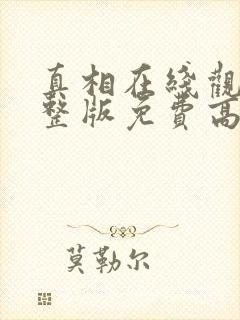 真相在线觀
整版免費高
莫勒尔